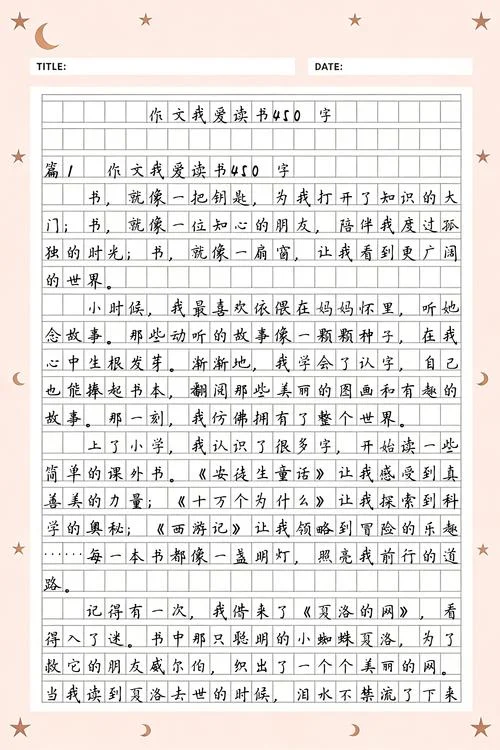 TITLE: DATE:
作文我爱读书450 字
篇1 作文我爱读书450 字
书，就像一把钥匙，为我打开了知识的大
门；书，就像一位知心的朋友，陪伴我度过孤
独的时光；书，就像一扇窗，让我看到更广阔
的世界。
小时候，我最喜欢依偎在妈妈怀里，听她
念故事。那些动听的故事像一颗颗种子，在我
心中生根发芽。渐渐地，我学会了认字，自己
也能捧起书本，翻阅那些美丽的图画和有趣的
故事。那一刻，我仿佛拥有了整个世界。
上了小学，我认识了很多字，开始读一些
简单的课外书。《安徒生童话》让我感受到真
善美的力量；《十万个为什么》让我探索到科
学的奥秘；《西游记》让我领略到冒险的乐趣
……每一本书都像一盏明灯，照亮我前行的道
路。
记得有一次，我借来了《夏洛的网》，看
得入了迷。书中那只聪明的小蜘蛛夏洛，为了
救它的朋友威尔伯，织出了一个个美丽的网。
当我读到夏洛去世的时候，泪水不禁流了下来